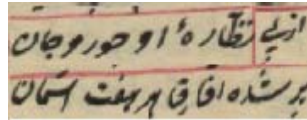 از پی نظاره او حور و جان
پر شده آفاق هر هفت آسمان